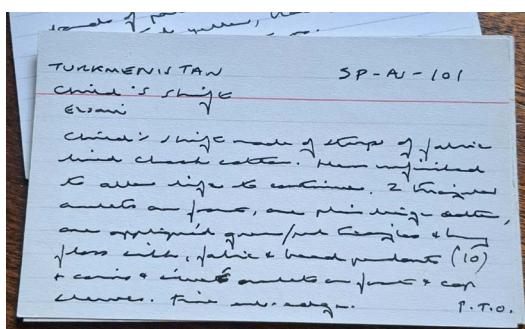 TURKMENISTAN SP-AS-101
Child's shift
Ersari
Child's shift made of strips of fabric
lined check cotton. Hem unfinished
to allow life to continue. 2 triangular
amulets on front, one plain beige cotton,
one appliqué'd green/red triangles &
floss silk, fabric & bead pendants (10)
& coins & amulets on front & cap
sleeves. Fine emb. edge. P.T.O.